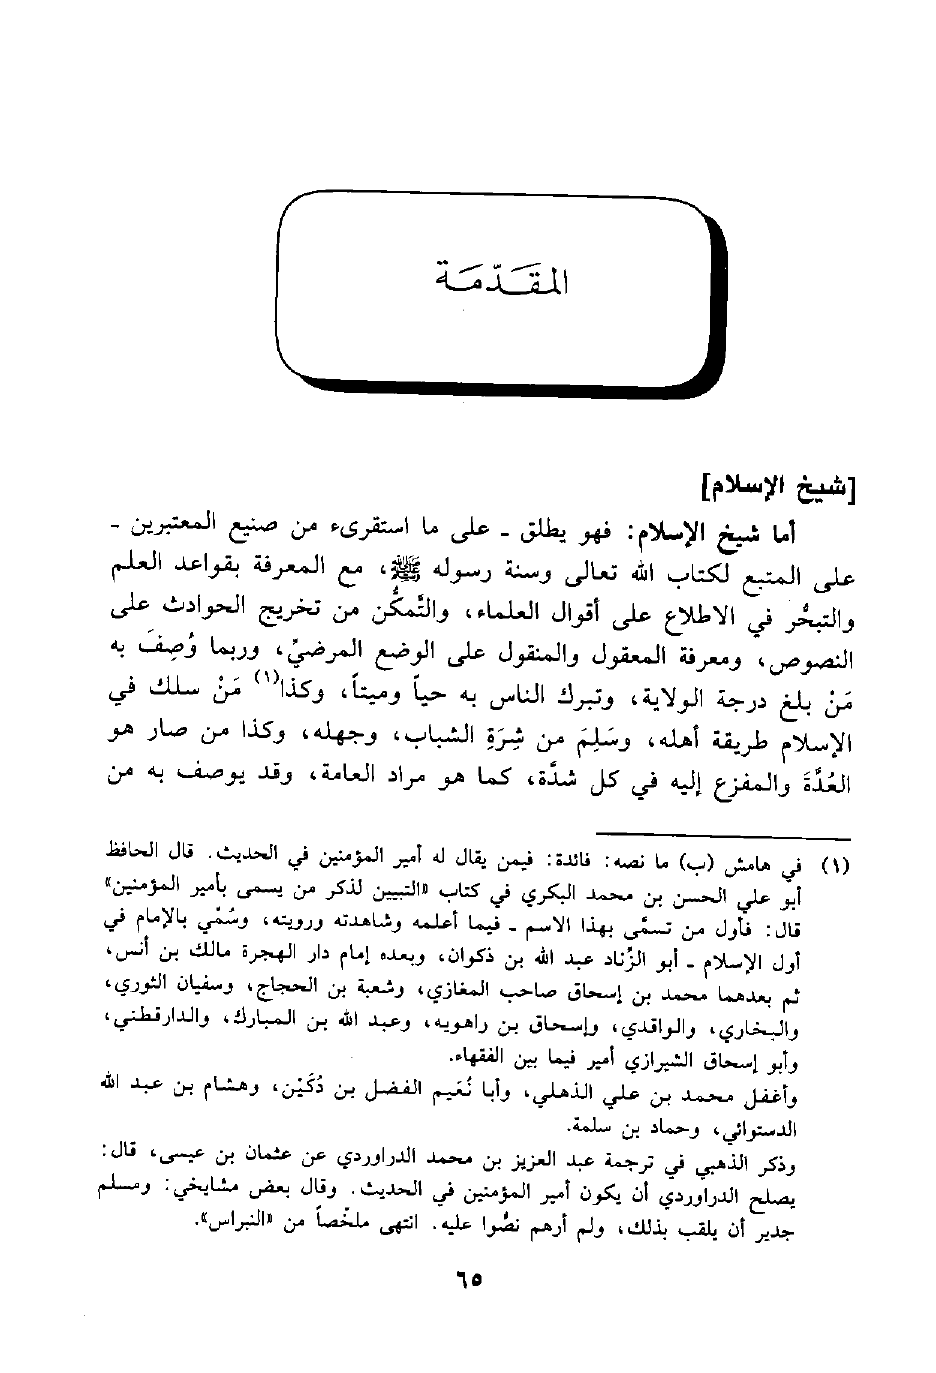 المقَدّمَة
[شيخ الإسلام]
أما شيخ الإسلام: فهو يطلق - على ما استقرىء من صنيع المعتبرين -
على المتبع لكتاب الله تعالى وسنة رسوله ﷺ، مع المعرفة بقواعد العلم
والتبحُّر في الاطلاع على أقوال العلماء، والتَّمكُّن من تخريج الحوادث على
النصوص، ومعرفة المعقول والمنقول على الوضع المرضيِّ، وربما وُصِفَ به
مَنْ بلغ درجة الولاية، وتبرك الناس به حياً وميتاً، وكذا(١) مَنْ سلك في
الإسلام طريقة أهله، وسَلِمَ من شِرَةِ الشباب، وجهله، وكذا من صار هو
العُدَّةَ والمفزع إليه في كل شدَّة، كما هو مراد العامة، وقد يوصف به من
(١) في هامش (ب) ما نصه: فائدة: فيمن يقال له أمير المؤمنين في الحديث. قال الحافظ
أبو علي الحسن بن محمد البكري في كتاب «التبيين لذكر من يسمى بأمير المؤمنين»
قال: فأول من تسمَّى بهذا الاسم - فيما أعلمه وشاهدته ورويته، وسُمِّي بالإمام في
أول الإسلام - أبو الزِّناد عبد الله بن ذكوان، وبعده إمام دار الهجرة مالك بن أنس،
ثم بعدهما محمد بن إسحاق صاحب المغازي، وشعبة بن الحجاج، وسفيان الثوري،
والبخاري، والواقدي، وإسحاق بن راهويه، وعبد الله بن المبارك، والدارقطني،
وأبو إسحاق الشيرازي أمير فيما بين الفقهاء.
وأغفل محمد بن علي الذهلي، وأبا نُعَيم الفضل بن دُكَيْن، وهشام بن عبد الله
الدستوائي، وحماد بن سلمة.
وذكر الذهبي في ترجمة عبد العزيز بن محمد الدراوردي عن عثمان بن عيسى، قال:
يصلح الدراوردي أن يكون أمير المؤمنين في الحديث. وقال بعض مشايخي: ومسلم
جدير أن يلقب بذلك، ولم أرهم نصُّوا عليه. انتهى ملخّصاً من «النبراس».
٦٥